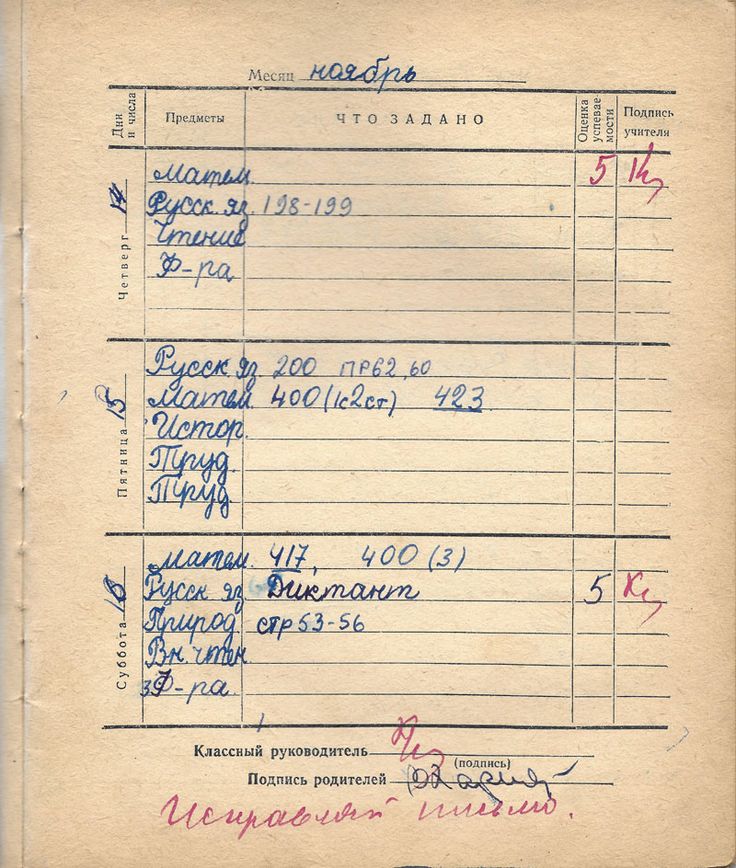 Месяц ноябрь
Дни и числа Предметы ЧТО ЗАДАНО Оценка успевае-мости Подпись учителя
Четверг 14
Матем. 5
Русск яз. 198-199
Чтение
Ф-ра
Пятница 15
Русск яз 200 ПР62,60
Матем. 400 (1с2ст) 423
Истор.
Труд
Труд
Суббота 16
Матем. 417, 400 (3)
Русск яз Диктант 5
Природ стр 53-56
Вн. чтен
Ф-ра
Классный руководитель
(подпись)
Подпись родителей
Исправляй письмо.